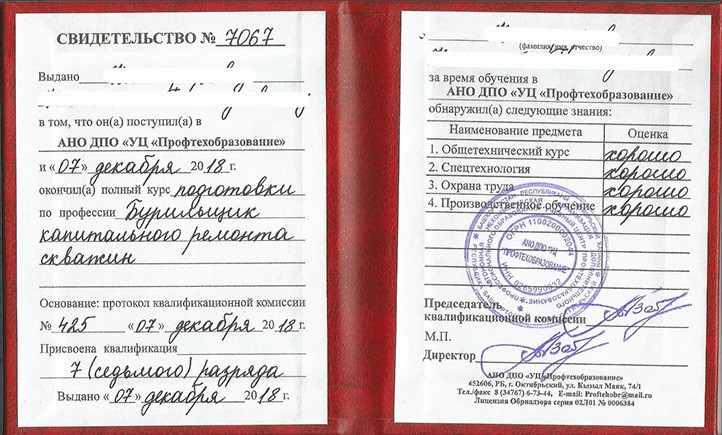 СВИДЕТЕЛЬСТВО № 7067
Выдано
в том, что он(а) поступил(а) в
АНО ДПО «УЦ «Профтехобразование»
и «07» декабря 2018 г.
окончил(а) полный курс подготовки
по профессии Бурильщик
капитального ремонта
скважин
Основание: протокол квалификационной комиссии
№ 425 «07» декабря 2018 г.
Присвоена квалификация
7 (седьмого) разряда
Выдано «07» декабря 2018 г.
(фамилия, имя, отчество)
за время обучения в
АНО ДПО «УЦ «Профтехобразование»
обнаружил(а) следующие знания:
Наименование предмета Оценка
1. Общетехнический курс хорошо
2. Спецтехнология хорошо
3. Охрана труда хорошо
4. Производственное обучение хорошо
АНО ДПО "УЦ
ПРОФТЕХОБРАЗОВАНИЕ"
Председатель
квалификационной комиссии
М.П.
Директор
АНО ДПО «УЦ«Профтехобразование»
452606, РБ, г. Октябрьский, ул. Кызыл Маяк, 74/1
Тел./факс 8 (34767) 6-73-44, E-mail: Proftehobr@mail.ru
Лицензия Обрнадзора серия 02Л01 № 0006384